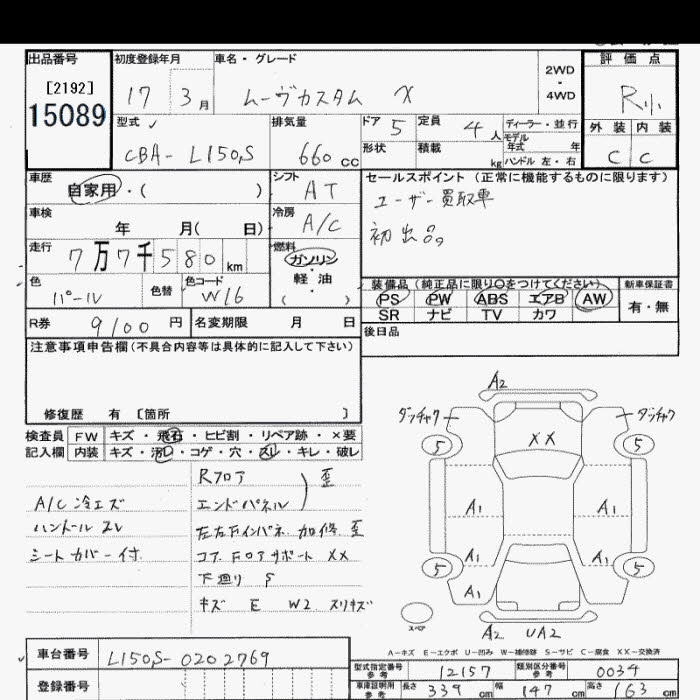 出品番号
[2192]
15089
初度登録年月
17 3月
車名・グレード
ムーヴカスタム X
2WD
・
4WD
評価点
R小
外装 内装
C C
型式
CBA- L150S
排気量
660 cc
ドア 5
定員 4人
形状
積載 kg
ディーラー・並行
モデル
年式 年
ハンドル 左・右
車歴
自家用・( )
シフト
AT
セールスポイント (正常に機能するものに限ります)
ユーザー買取車
初出品。
車検
年 月( 日)
冷房
A/C
走行
7万7千580km
燃料
ガソリン
・
軽油
( )
色
パール
色替
色コード
W16
装備品 (純正品に限り○をつけてください)
PS PW ABS エアB AW
SR ナビ TV カワ
新車保証書
有・無
R券 9100 円
名変期限 月 日
後日品
注意事項申告欄(不具合内容等は具体的に記入して下さい)
修復歴 有 [箇所 ]
検査員
記入欄
FW キズ・飛石・ヒビ割・リペア跡・×要
内装 キズ・汚レ・コゲ・穴・スレ・キレ・破レ
A/C 冷エズ
ハンドル スレ
シートカバー付
Rフロア
エンドパネル
歪
左右Fインパネ 加修 歪
コア Fロアサポート XX
下廻り S
キズ E W2 スリキズ
A2
ダッチャク
ダッチャク
5
5
XX
A1
A1
A1
A1
5
5
A1
スペア
A2 UA2
A-キズ E-エクボ U-凹み W-補修跡 S-サビ C-腐食 XX-交換済
車台番号 L150S-0202769
登録番号
型式指定番号
参考
12157
類別区分番号
参考
0034
車庫証明用
参考
長さ 339 cm 幅 147 cm 高さ 163 cm